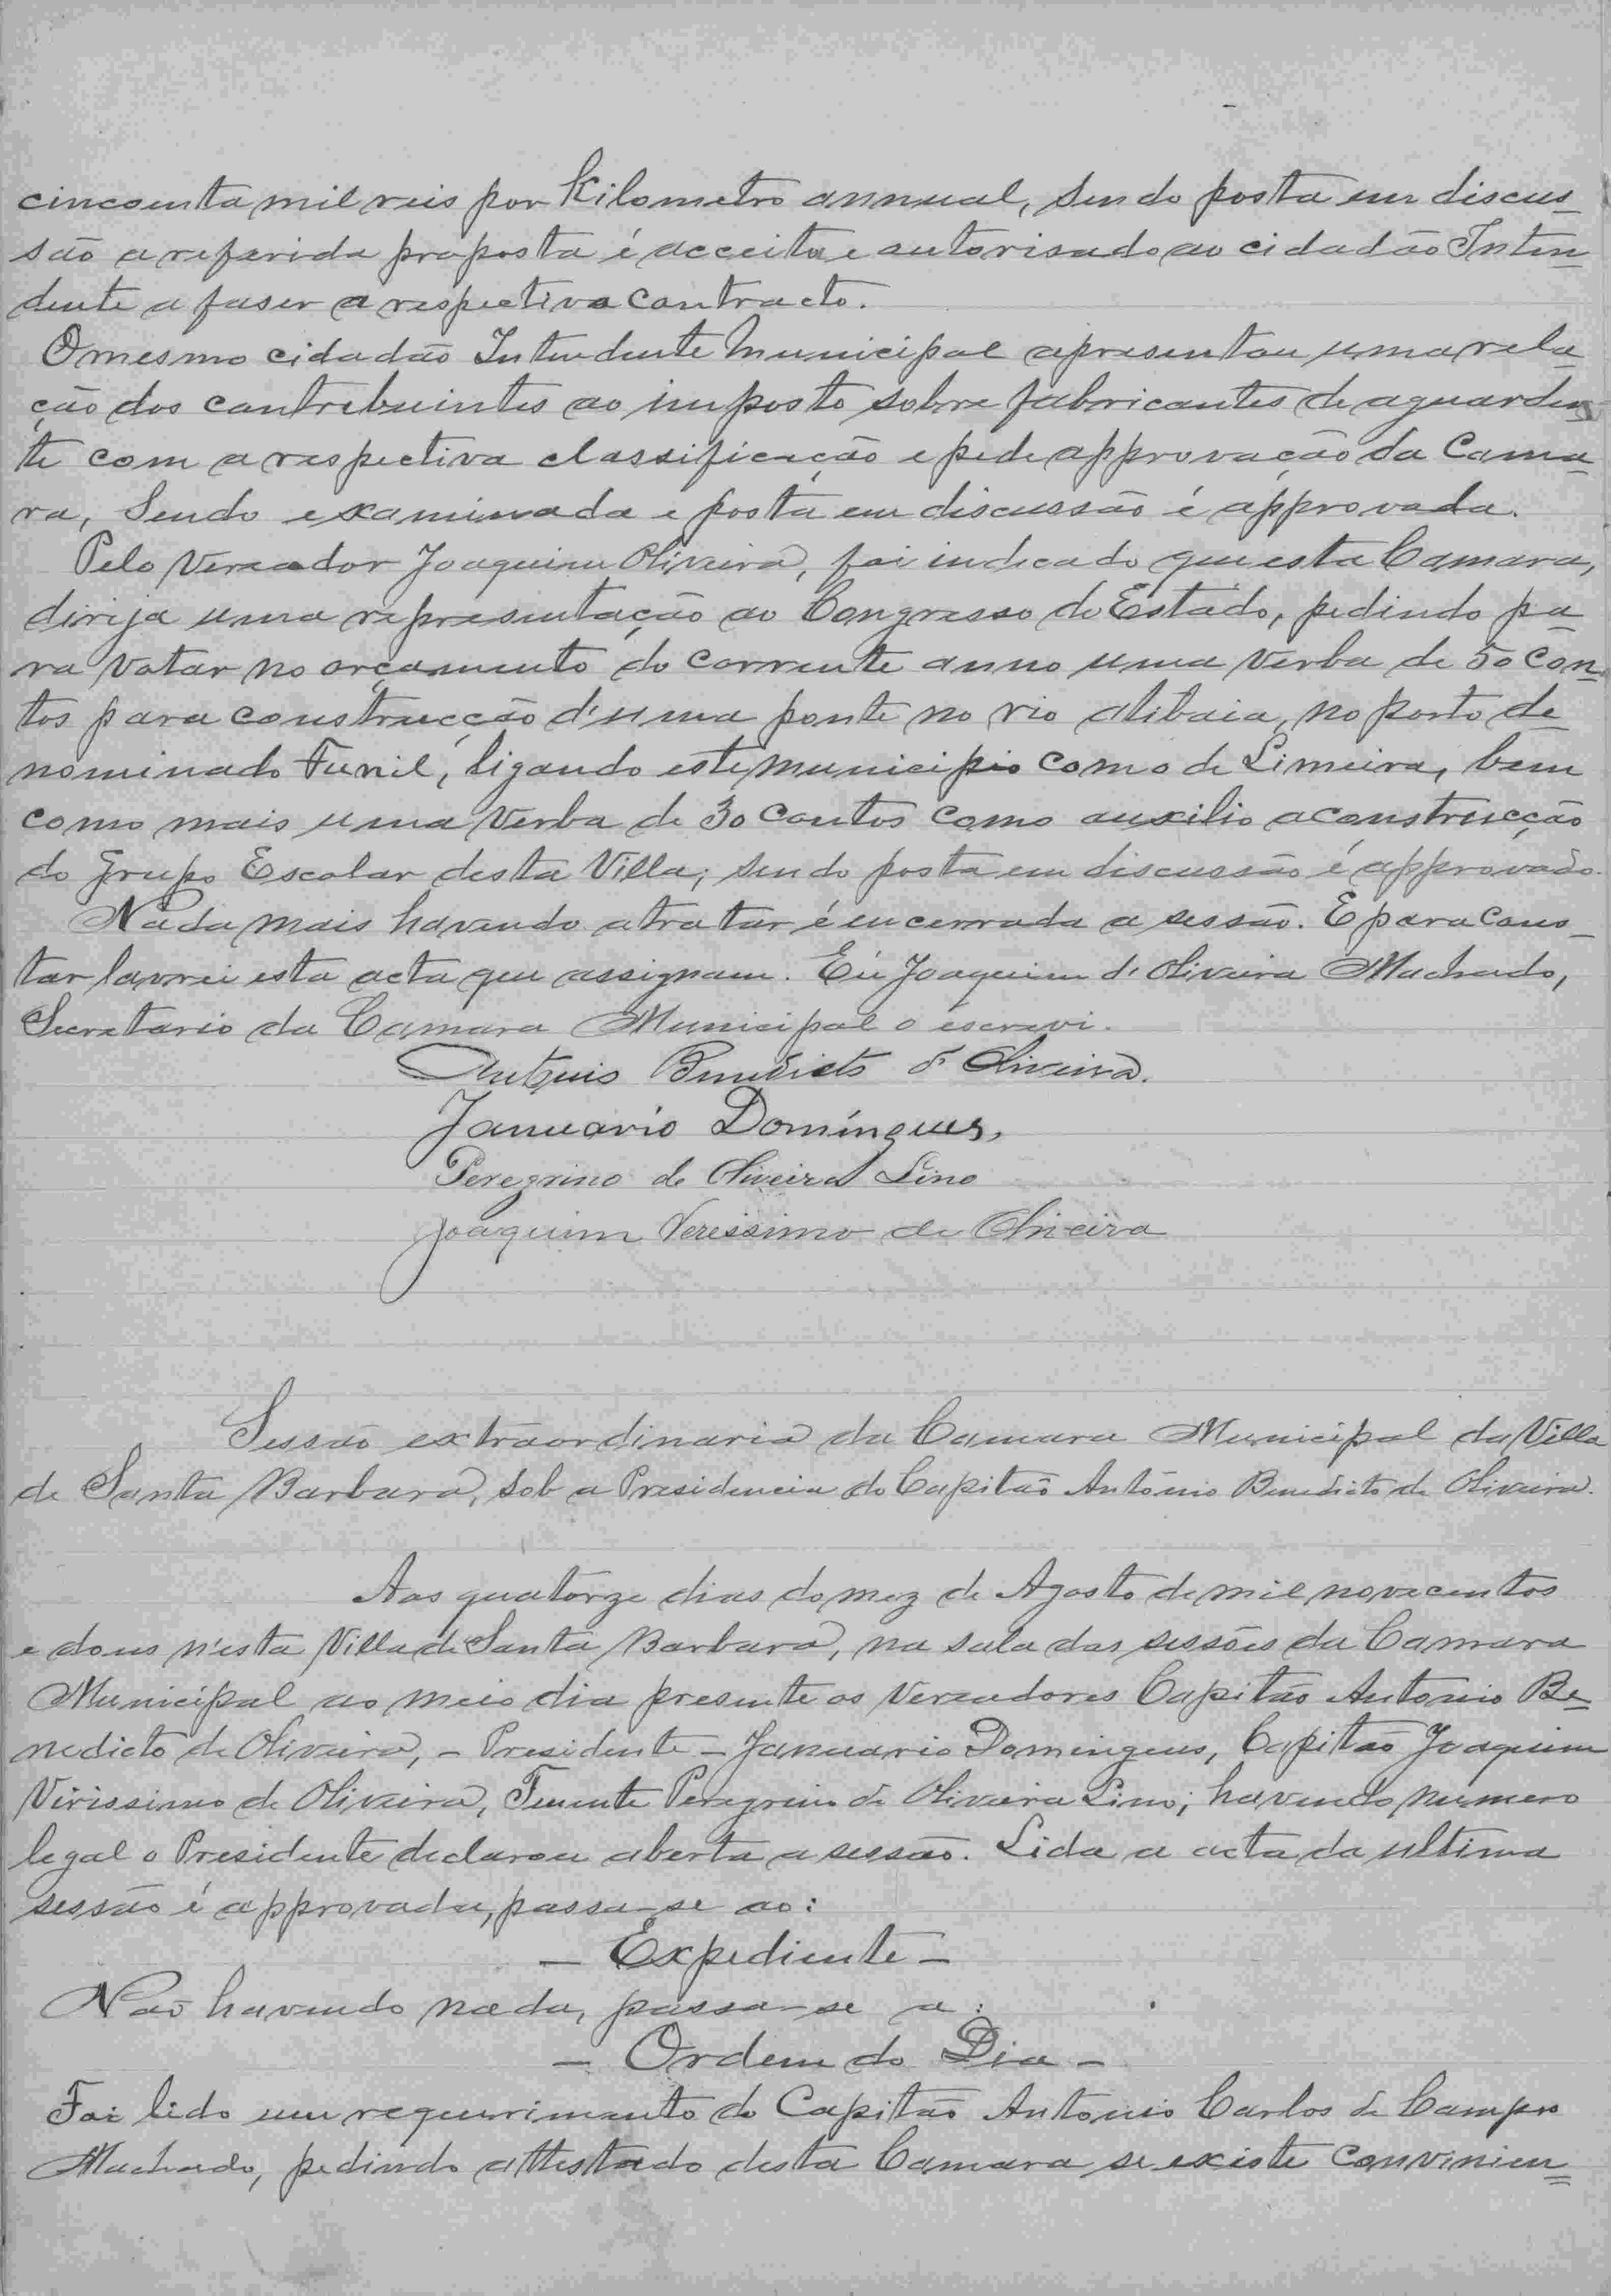 cincoenta mil reis por kilometro annual, sendo posta em discus-
são a referida proposta é acceita e autorisado ao cidadão Inten-
dente a faser a respectiva contracto.
O mesmo cidadão Intendente Municipal apresentou uma rela-
ção dos contrebuintes ao imposto sobre fabricantes de aguarden-
te com a respectiva classificação e pede approvação da Cama-
ra, Sendo examinada e posta em discussão é approvada.
Pelo Vereador Joaquim Oliveira, foi indicado que esta Camara,
dirija uma representação ao Congresso do Estado, pedindo pa-
ra votar no orçamento do corrente anno uma verba de 50 con-
tos para construcção d'uma ponte no rio Atibaia, no porto de-
nominado Funil, ligando este municipio com o de Limeira, bem
como mais uma verba de 30 contos como auxilio a construcção
do Grupo Escolar desta Villa; sendo posta em discussão é approvado.
Nada mais havendo a tratar é encerrada a sessão. E para cons-
tar lavrei esta acta que assignam. Eu Joaquim d'Oliveira Machado,
Secretario da Camara Municipal o escrevi.
Antonio Benedicto d'Oliveira.
Januario Domingues,
Peregrino de Oliveira Lino
Joaquim Verissimo de Oliveira
Sessão extraordinaria da Camara Municipal da Villa
de Santa Barbara, sob a Presidencia do Capitão Antonio Benedicto de Oliveira.
Aos quatorze dias do mez de Agosto de mil novecentos
e dous n'esta Villa de Santa Barbara, na sala das sessões da Camara
Municipal ao meio dia presente os Vereadores Capitão Antonio Be-
nedicto de Oliveira, - Presidente - Januario Domingues, Capitão Joaquim
Virissimo de Oliveira, Tenente Peregrino de Oliveira Lino; havendo numero
legal o Presidente declarou aberta a sessão. Lida a acta da ultima
sessão é approvada, passa-se ao:
- Expediente -
Não havendo nada, passa-se a:
- Ordem do Dia -
Foi lido um requerimento do Capitão Antonio Carlos de Campos
Machado, pedindo attestado desta Camara se existe convinien-